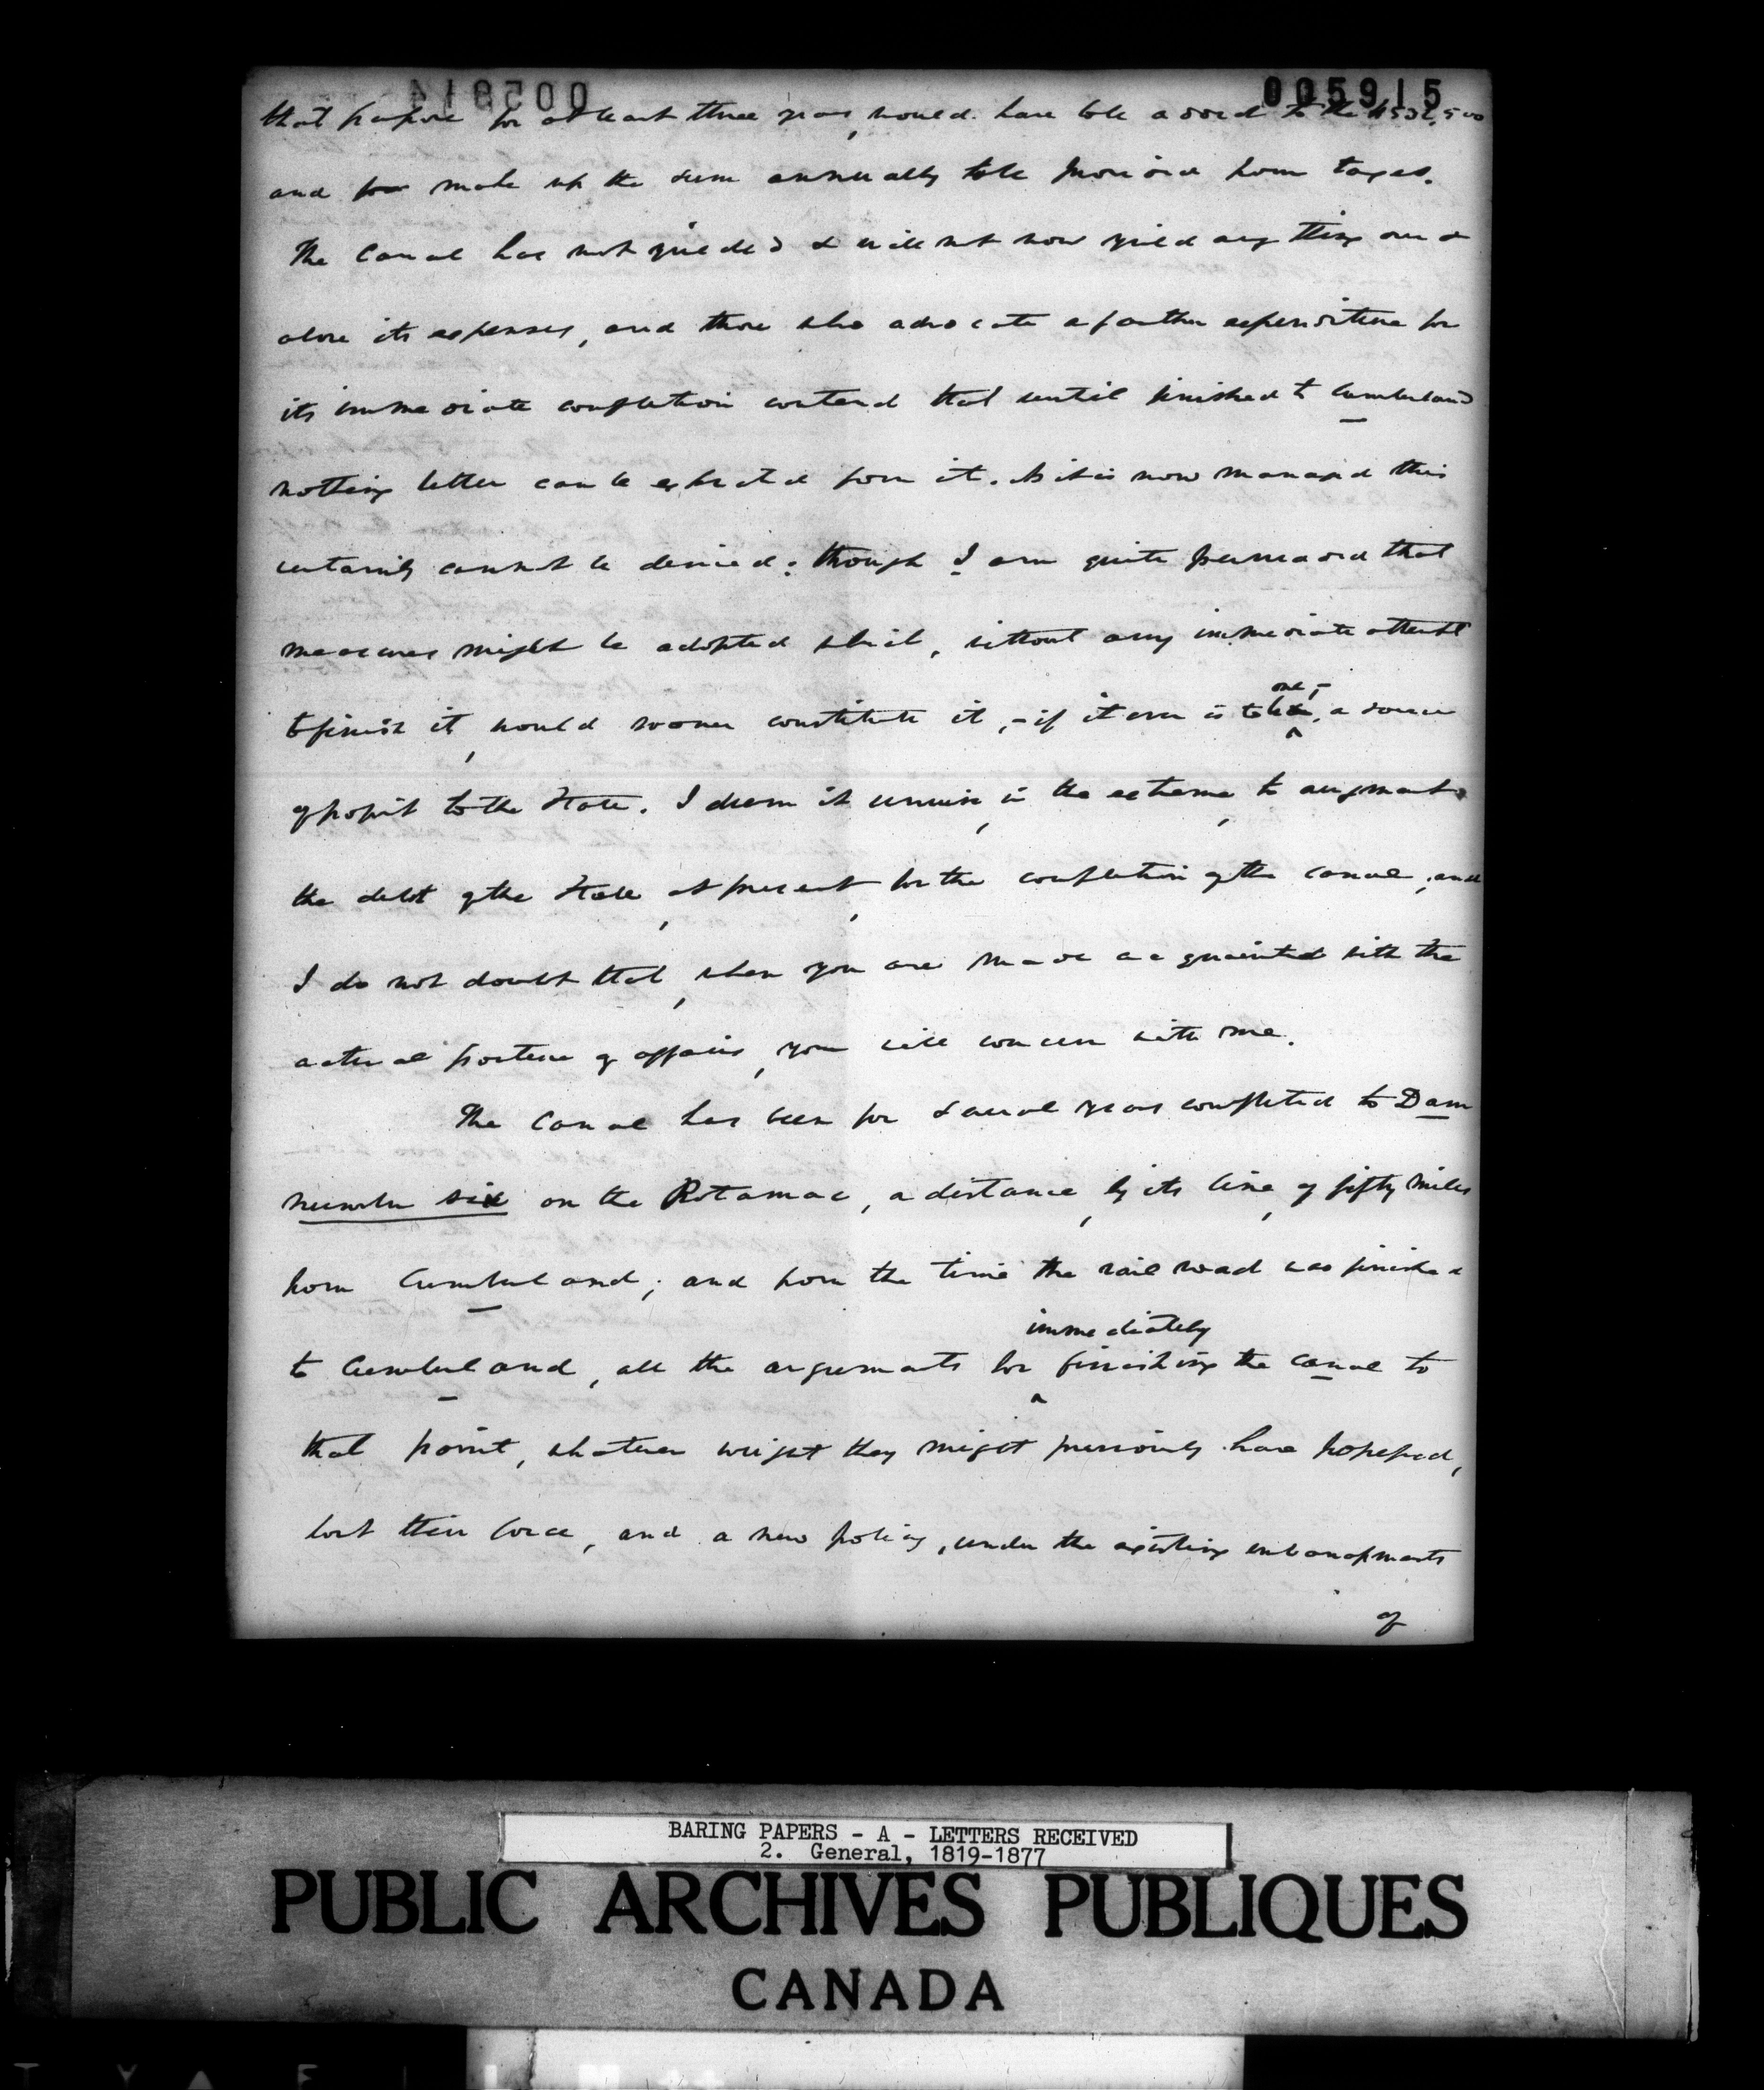 005915
005914
that purpose for at least three years, would have to be added to the $532,500
and make up the sum annually to be provided from taxes.
The Canal has not yielded & will not now yield any thing over &
above its expenses, and those who advocate a farther expenditure for
its immediate completion contend that until finished to Cumberland
nothing better can be expected from it. As it is now managed this
certainly cannot be denied: though I am quite persuaded that
measures might be adopted which, without any immediate attempt
to finish it, would sooner constitute it, - if it ever is to be one, - a source
of profit to the State. I deem it unwise, in the extreme, to augment
the debt of the State, at present, for the completion of the canal; and
I do not doubt that, when you are made acquainted with the
actual posture of affairs, you will concur with me.
The Canal has been for several years completed to Dam
number six on the Potamac, a distance, by its line, of fifty miles
from Cumberland; and from the time the rail road was finished
to Cumberland, all the arguments for immediately finishing the canal to
that point, whatever weight they might previously have possessed,
lost their force, and a new policy, under the existing embarrassments
of
BARING PAPERS - A - LETTERS RECEIVED
2. General, 1819-1877
PUBLIC ARCHIVES PUBLIQUES
CANADA